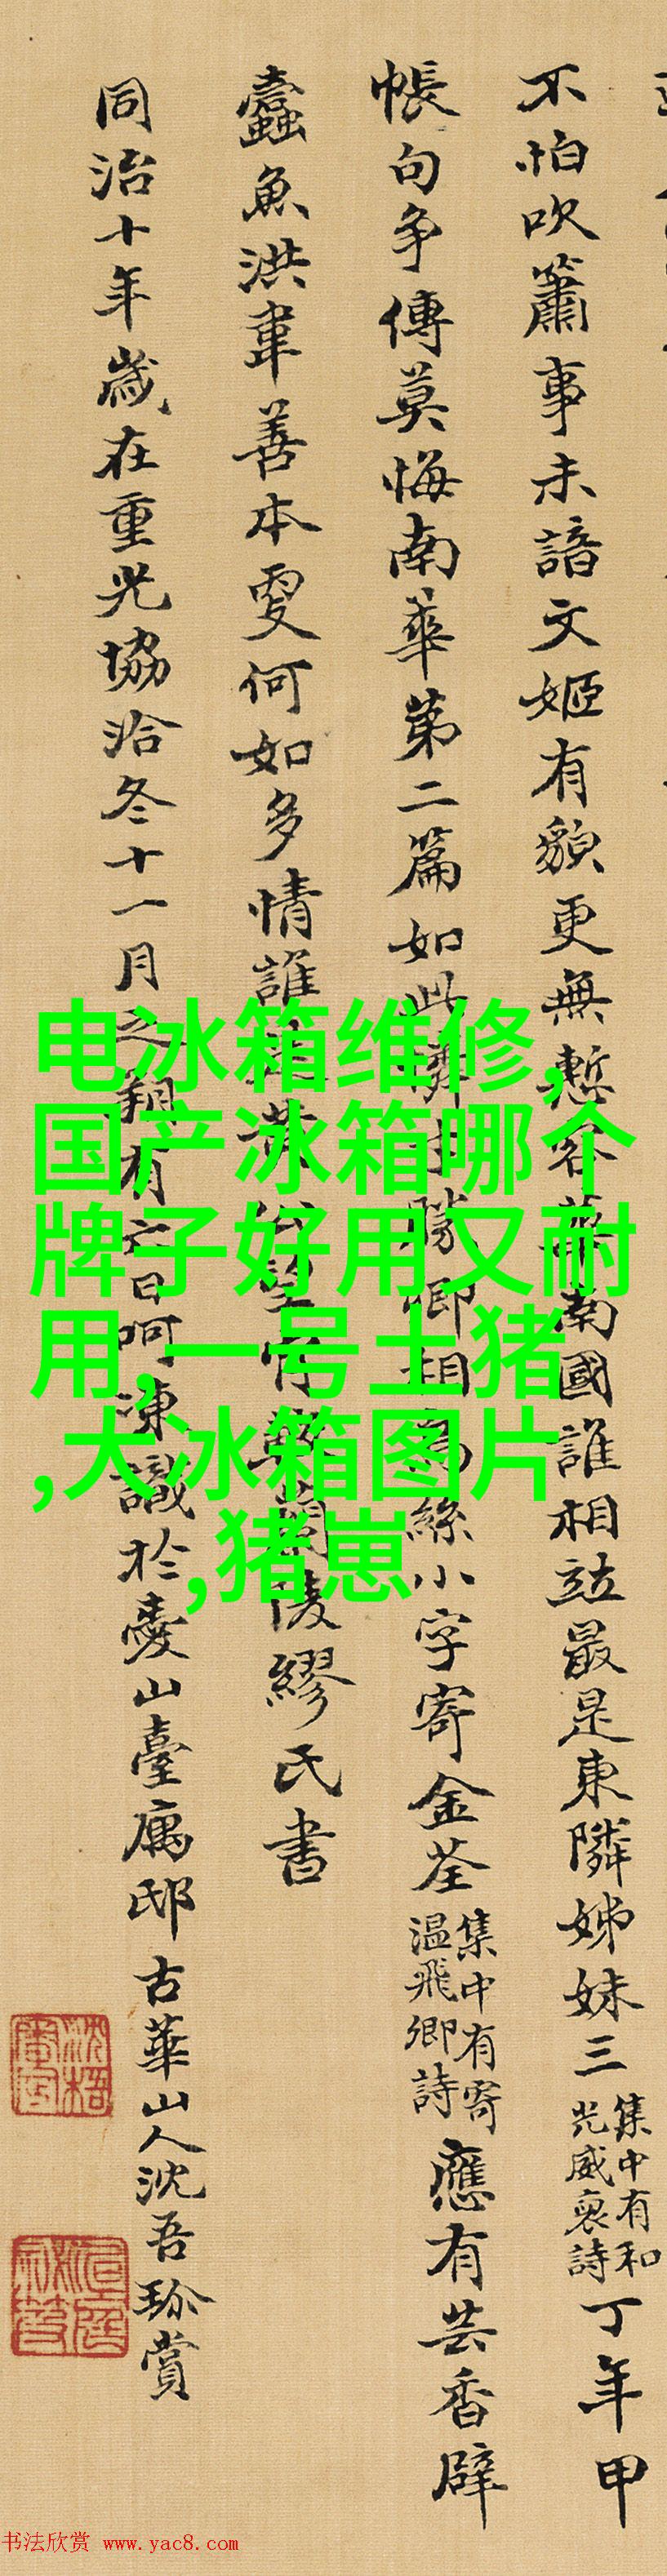 不怕吹簫事未諳文姬有貌更無慙容華南國誰相竝最是東隣姊妹三
集中有和
光威裒詩
丁年甲
帳句争傳莫悔南華第二篇如此憐才勝卿相烏絲小字寄金荃
集中有寄
温飛卿詩
應有芸香辟
蠹魚洪韋善本更何如多情誰是
蘭陵繆氏書
同治十年歲在重光協洽冬十一月之朔有六日呵凍識於夔山臺寓邸古華山人沈吾珎賞
电冰箱维修,
国产冰箱哪个
牌子好用又耐
用,一号土猪
,大冰箱图片
,猪崽
书法欣赏 www.yac8.com